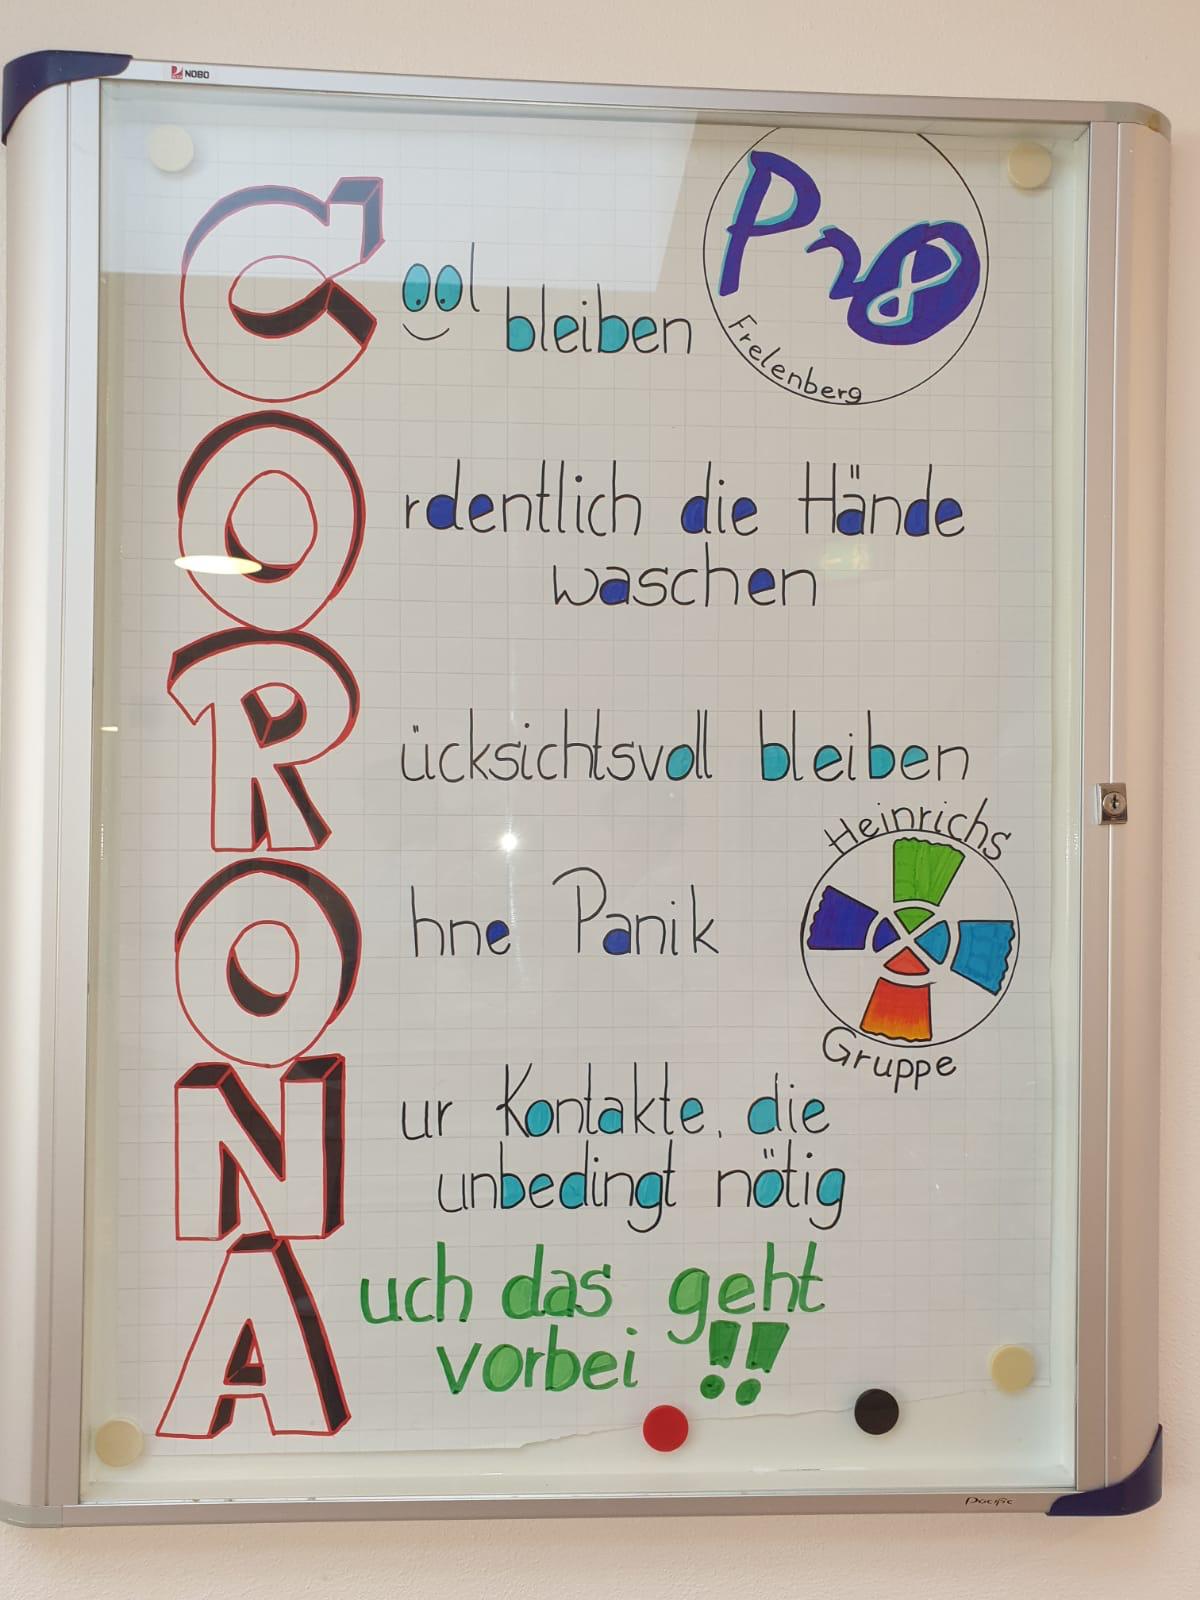 NOBO
Pr8
Frelenberg
Cool bleiben
Ordentlich die Hände
waschen
Rücksichtsvoll bleiben
Ohne Panik
Heinrichs
Gruppe
Nur Kontakte, die
unbedingt nötig
Auch das geht
vorbei !!
Pacific